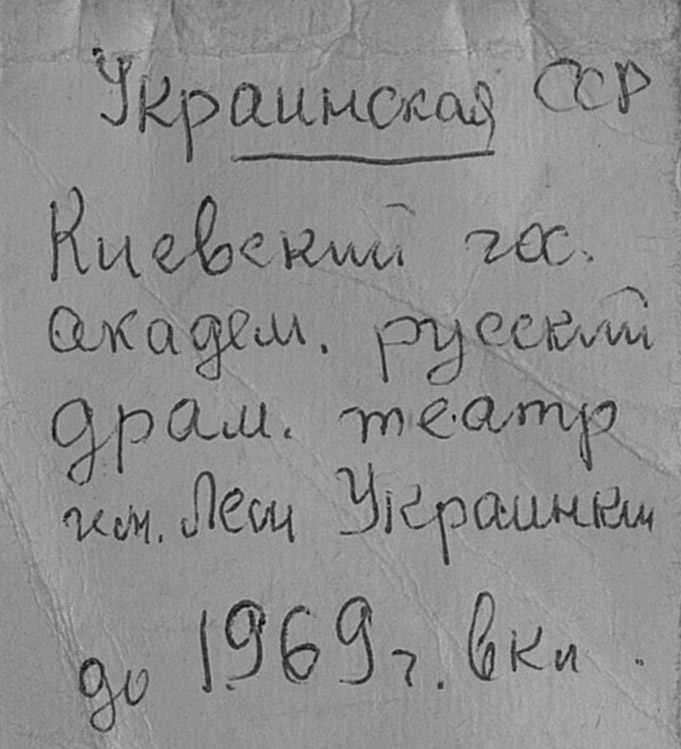 Украинская ССР
Киевский гос.
академ. русский
драм. театр
им. Леси Украинки
до 1969 г. вкл.